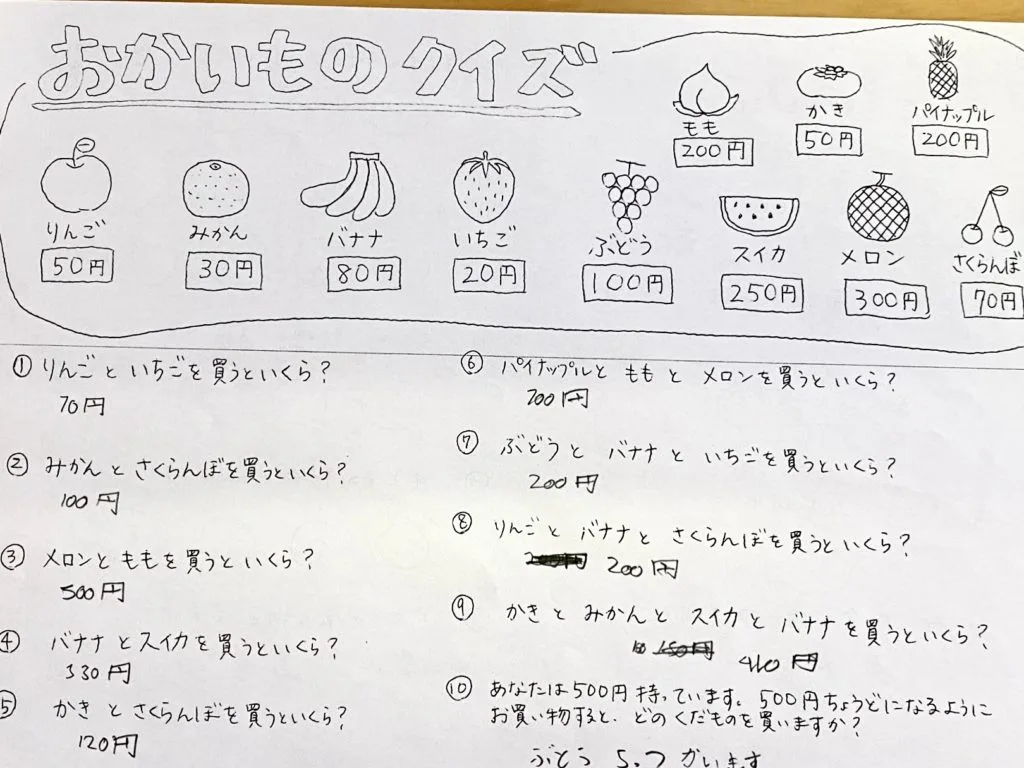 おかいものクイズ
もも
200円
かき
50円
パイナップル
200円
りんご
50円
みかん
30円
バナナ
80円
いちご
20円
ぶどう
100円
スイカ
250円
メロン
300円
さくらんぼ
70円
① りんごといちごを買うといくら?
70円
② みかんとさくらんぼを買うといくら?
100円
③ メロンとももを買うといくら?
500円
④ バナナとスイカを買うといくら?
330円
⑤ かきとさくらんぼを買うといくら?
120円
⑥ パイナップルとももとメロンを買うといくら?
700円
⑦ ぶどうとバナナといちごを買うといくら?
200円
⑧ りんごとバナナとさくらんぼを買うといくら?
200円
⑨ かきとみかんとスイカとバナナを買うといくら?
410円
⑩ あなたは500円持っています。500円ちょうどになるように
お買い物すると、どのくだものを買いますか?
ぶとう 5.つ かいます